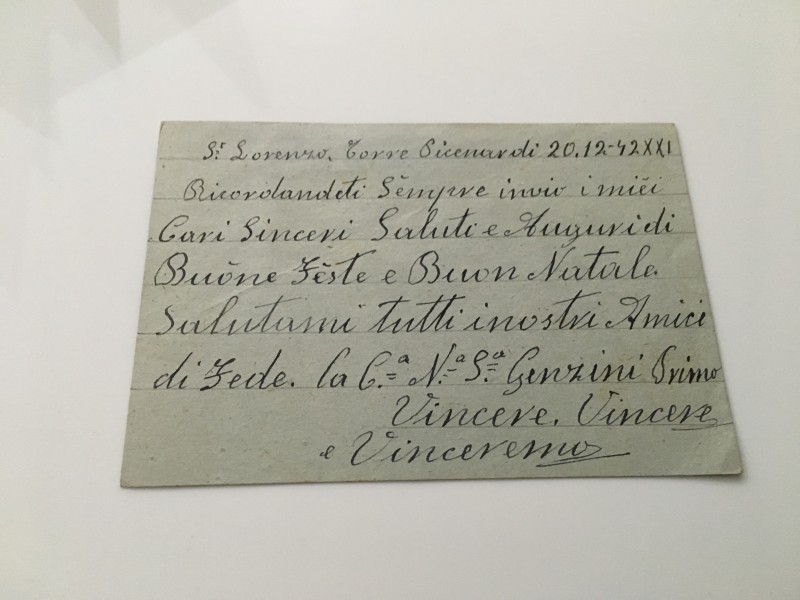 S.t Lorenzo. Torre Picenardi 20.12-42 XXI
Ricordandoti Sempre invio i miei
Cari Sinceri Saluti e Auguri di
Buone Feste e Buon Natale.
Salutami tutti i nostri Amici
di Fede. la C.a N.a S.a Genzini Primo
Vincere. Vincere
e Vinceremo